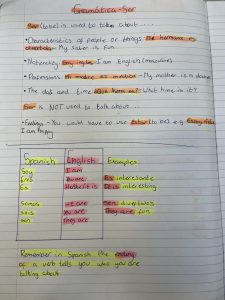 Gramática - Ser
Ser (to be) is used to talk about.....
• Characteristics of people or things Mi hermana es
divertida - My sister is fun
• Nationality Soy inglés I am English (masculine)
• Professions Mi madre es médica - My mother is a doctor
• The date and time ¿Qué hora es? What time is it?
Ser is NOT used to talk about...
• Feelings - You would have to use Estar (to be) e.g Estoy feliz
I am happy
Spanish English Examples:
Soy I am
Eres You are Es interesante
Es He/she/it is It is interesting
Somos We are Son divertidos
Sois You are They are fun
Son They are
Remember in Spanish the ending
of a verb tells you who you are
talking about